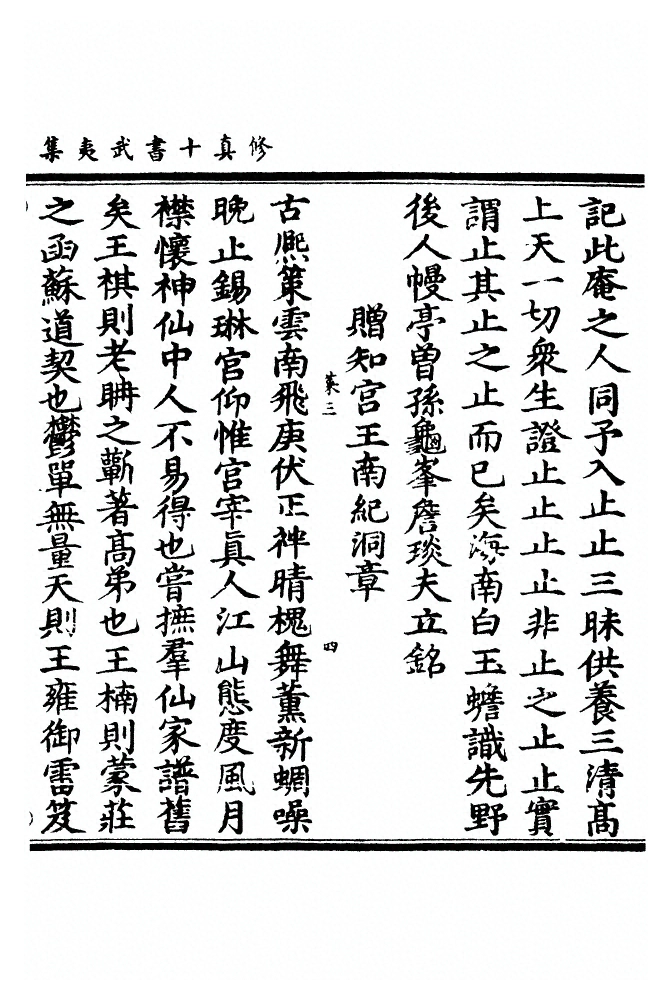 修真十書武夷集
記此庵之人同予入止止三昧供養三清髙
上天一切衆生證止止止止非止之止止實
謂止其止之止而已矣海南白玉蟾識先野
後人幔亭曽孫龜峯詹琰夫立銘
贈知宫王南紀洞章
菜三
四
古熈䇿雲南飛庚伏正神晴槐舞薫新蜩噪
晚止錫琳宫仰惟宫宰眞人江山態度風月
襟懷神仙中人不易得也嘗撫羣仙家譜舊
矣王棋則老聃之蘄著髙弟也王楠則蒙莊
之函蘇道契也欝單無量天則王雍御雷笈